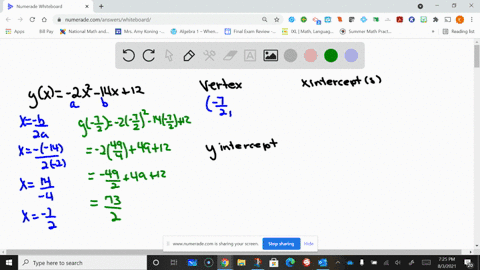 Numerade Whiteboard
numerade.com/answers/whiteboard/
Apps
National Math and...
Mrs. Amy Koning -...
Algebra 1 – Whenev...
Final Exam Review -...
(XL) Math, Language,...
Summer Math Practi...
Reading list
g(x) = -2x² - 14x + 12
a b
x = -b
2a
x = -(-14)
2(-2)
x = 14
-4
x = -7
2
g(-7/2) = -2(-7/2)² - 14(-7/2) + 12
= -2(49/4) + 49 + 12
= -49/2 + 49 + 12
= 73
2
Vertex
(-7/2,
y intercept
x intercept(s)
www.numerade.com is sharing your screen.
Stop sharing
Hide
7:25 PM
8/3/2021